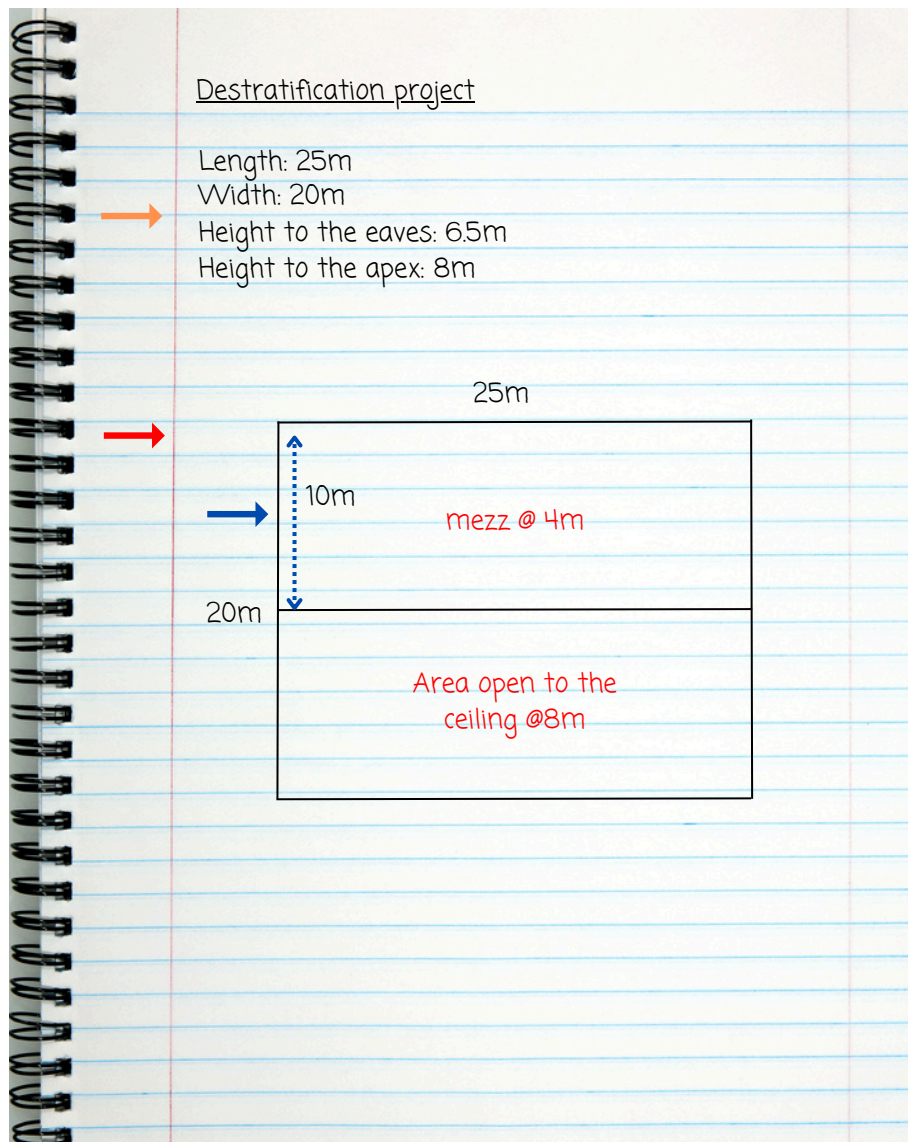 Destratification project
Length: 25m
Width: 20m
Height to the eaves: 6.5m
Height to the apex: 8m
25m
10m
mezz @ 4m
20m
Area open to the
ceiling @8m